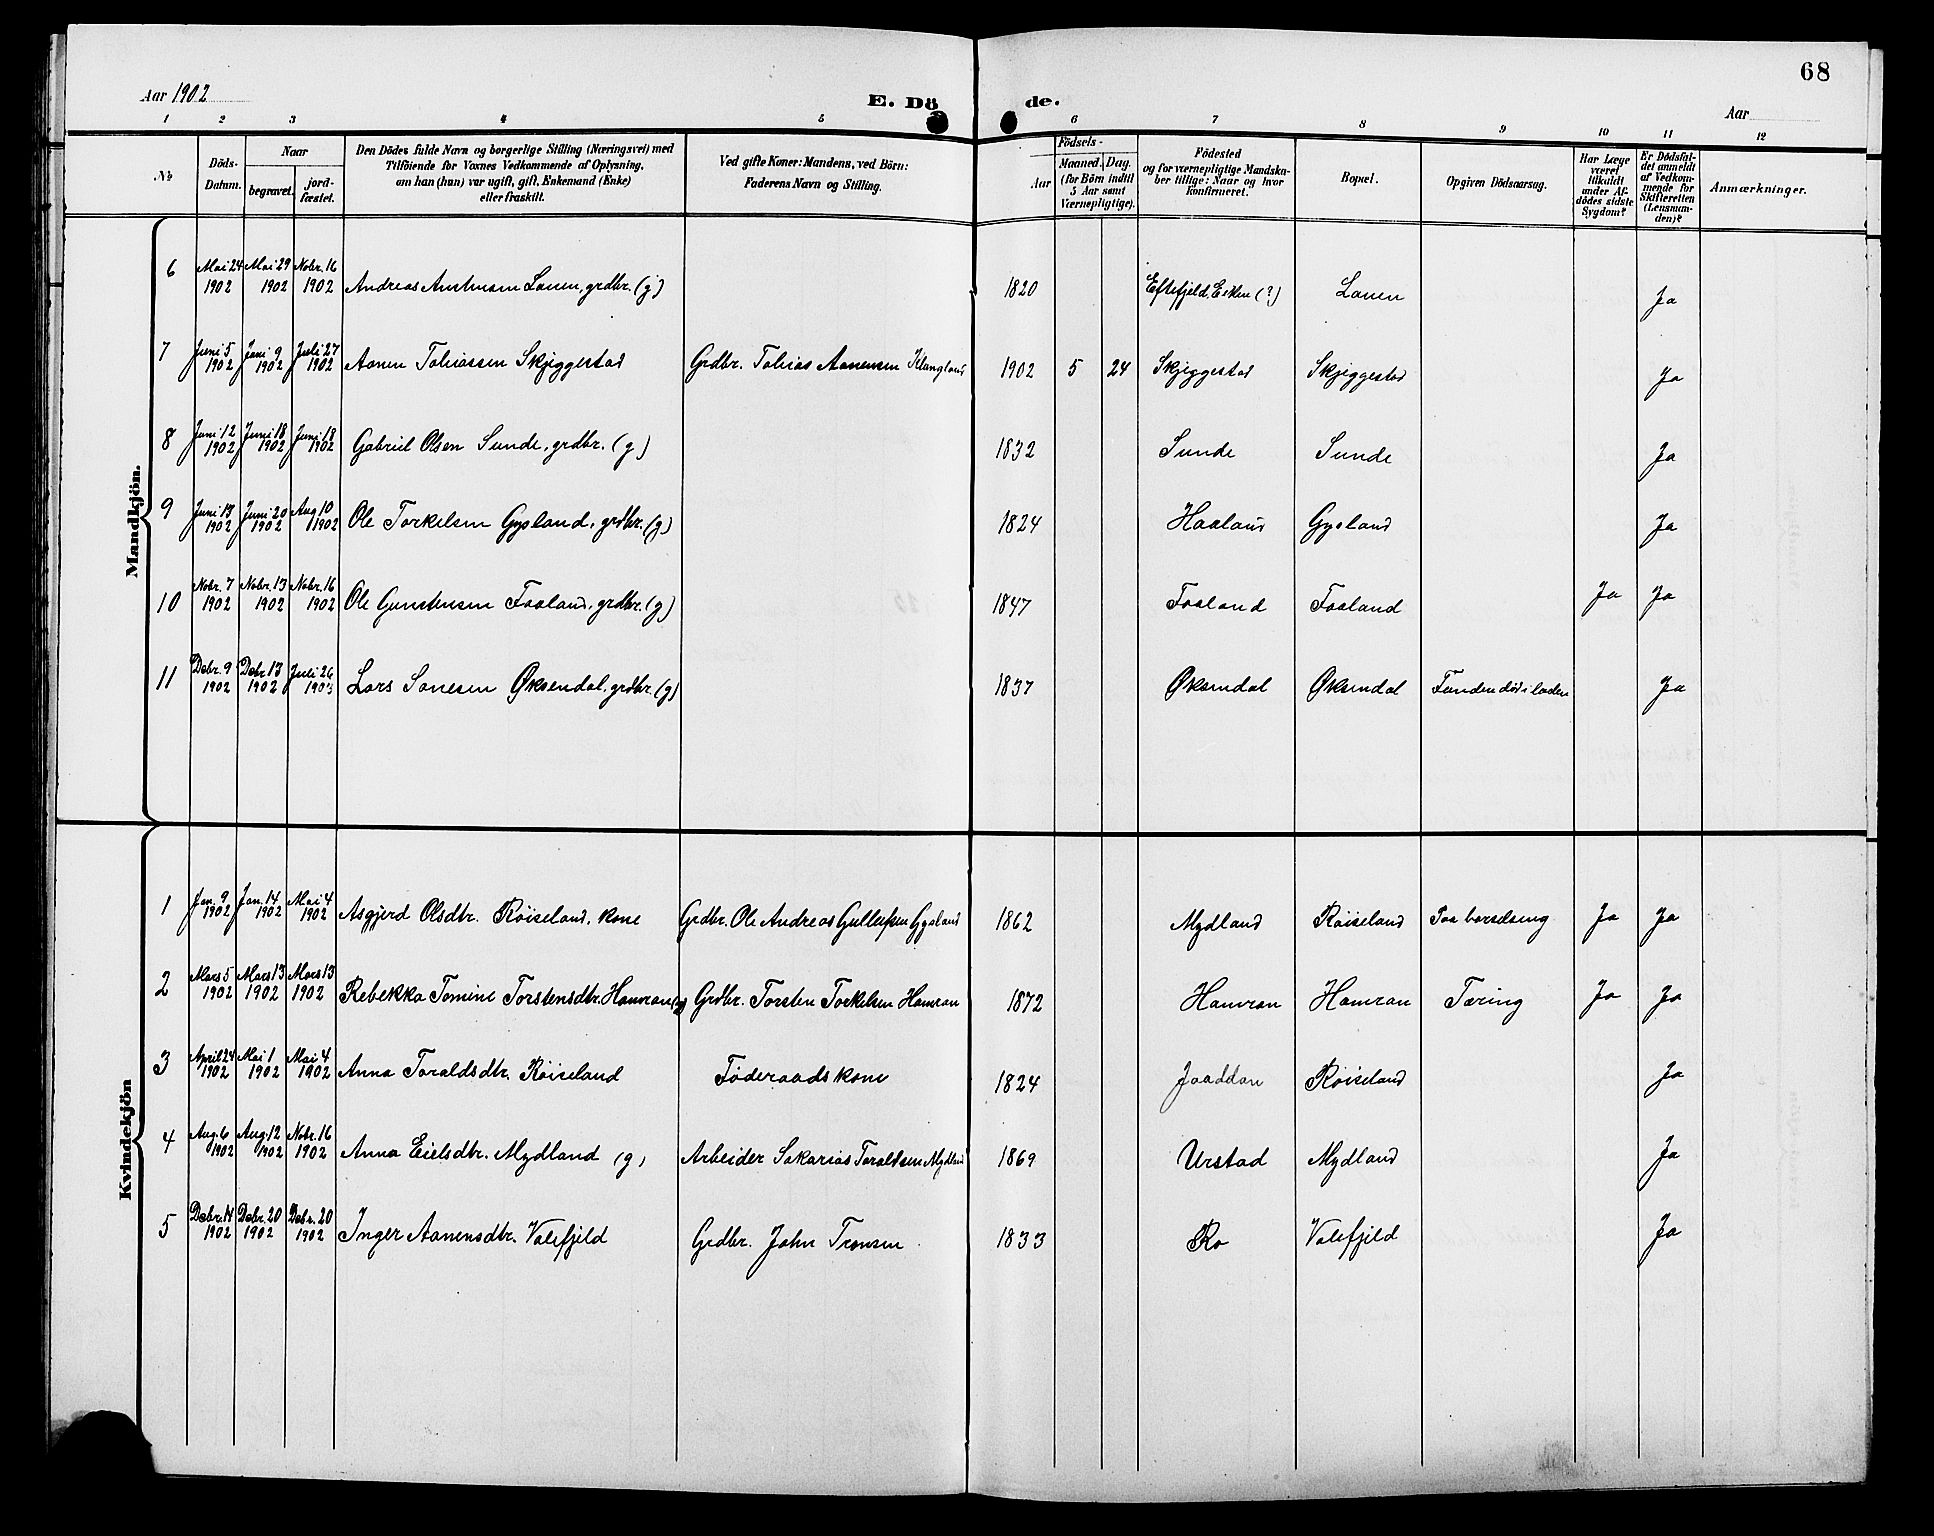 68
Aar 1902
E. Dö de.
Aar
1 2 3 4 5 6 7 8 9 10 11 12
№
Döds-
Datum.
Naar
begravet.
jord-
fæstet.
Den Dödes fulde Navn og borgerlige Stilling (Næringsvei) med
Tilföiende for Voxnes Vedkommende af Oplysning,
om han (hun) var ugift, gift, Enkemand (Enke)
eller fraskilt.
Ved gifte Koner: Mandens, ved Börn:
Faderens Navn og Stilling.
Födsels-
Aar
Maaned. Dag.
(for Börn indtil
5 Aar samt
Værnepligtige).
Födested
og for værnepligtige Mandska-
ber tillige: Naar og hvor
konfirmeret.
Bopæl.
Opgiven Dödsaarsag.
Har Læge
været
tilkaldt
under Af-
dödes sidste
Sygdom?
Er Dödsfal-
det anmeldt
af Vedkom-
mende for
Skifteretten
(Lensman-
den)?
Anmærkninger.
Mandkjön.
6 Mai 24 1902 Mai 29 1902 Nobr. 16 1902 Andreas Lauen, grdbr. (g) 1820 Eftefjeld, Eiken (?) Lauen Ja
7 Juni 5 1902 Juni 9 1902 Juli 27 1902 Aanen Tobiassen Skjeggestad Grdbr. Tobias Aanensen 1902 5 24 Skjeggestad Skjeggestad Ja
8 Juni 12 1902 Juni 18 1902 Juni 18 1902 Gabriel Olsen Sunde, grdbr. (g) 1832 Sunde Sunde Ja
9 Juni 13 1902 Juni 20 1902 Aug 10 1902 Ole Torkelsen Gysland, grdbr. (g) 1824 Haaland Gysland Ja
10 Nobr. 7 1902 Nobr. 13 1902 Nobr. 16 1902 Ole Gunstensen Faaland, grdbr. (g) 1847 Faaland Faaland Ja Ja
11 Debr. 9 1902 Debr. 13 1902 Juli 26 1903 Lars Øksendal, grdbr. (g) 1837 Øksendal Øksendal Funden död i laden Ja
Kvindekjön
1 Jan. 9 1902 Jan. 14 1902 Mai 4 1902 Asgjerd Olsdtr. Röiseland, kone Grdbr. Ole Andreas Gullufsen Gysland 1862 Mydland Röiseland Paa barselseng Ja Ja
2 Mars 5 1902 Mars 13 1902 Mars 13 1902 Rebekka Tomine Torstensdtr. Hamran Grdbr. Torsten Torkelsen Hamran 1872 Hamran Hamran Tæring Ja Ja
3 April 24 1902 Mai 1 1902 Mai 4 1902 Anna Taraldsdtr. Röiseland Föderaadskone 1824 Jaaddan Röiseland Ja
4 Aug. 6 1902 Aug. 12 1902 Nobr. 16 1902 Anna Eielsdtr. Mydland (g) Arbeider Sakarias Taraldsen Mydland 1869 Urstad Mydland Ja
5 Debr. 14 1902 Debr. 20 1902 Debr. 20 1902 Inger Aanensdtr. Valefjeld Grdbr. John Tronsen 1833 Ro Valefjeld Ja